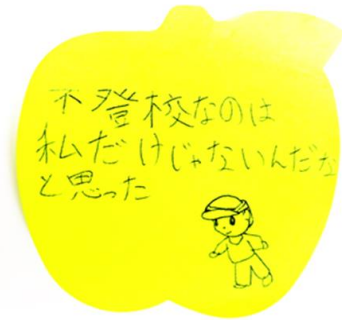 不登校なのは
私だけじゃないんだな
と思った